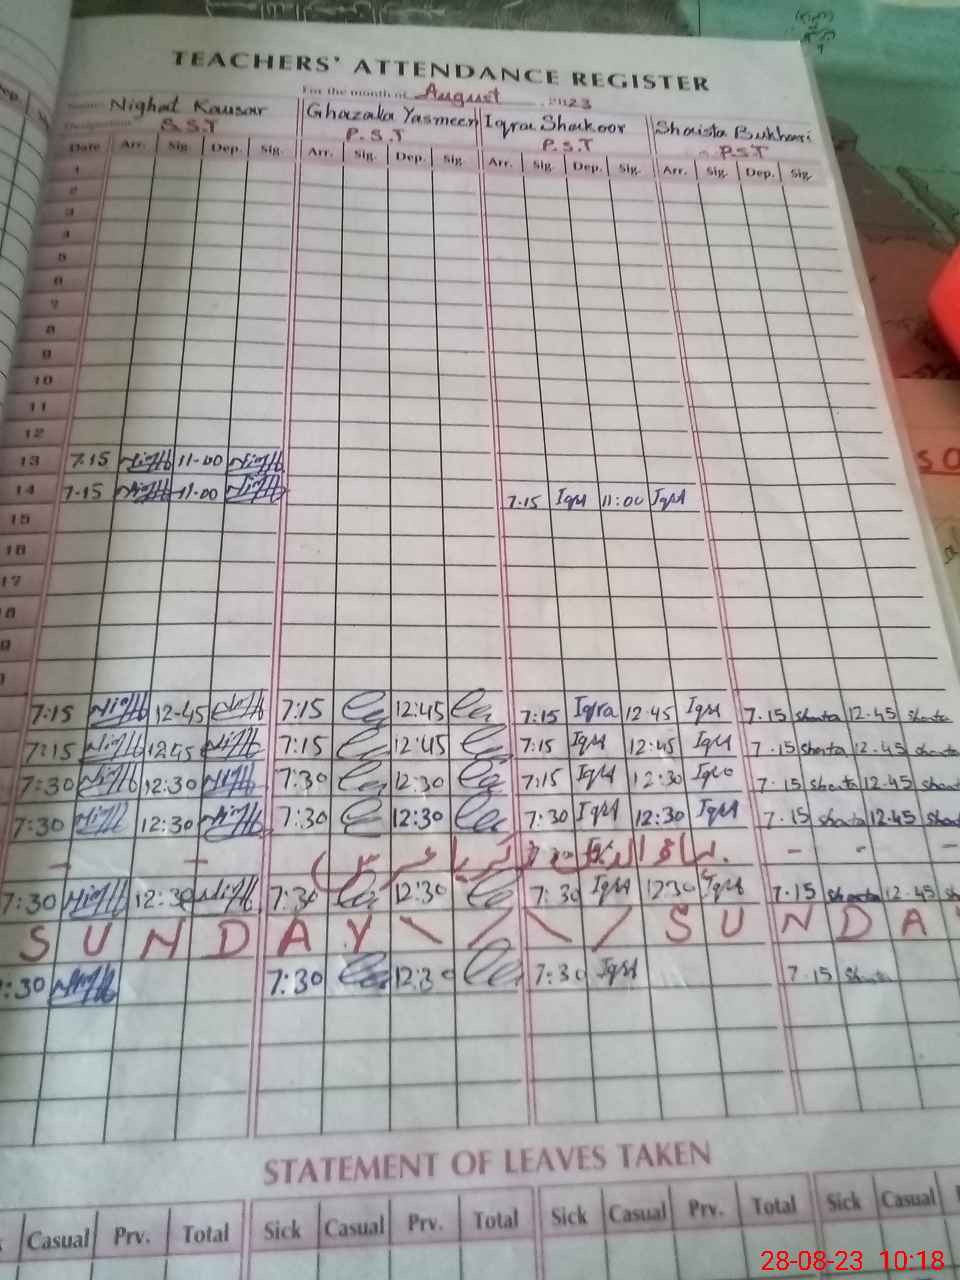 TEACHERS' ATTENDANCE REGISTER
For the month of August 2023
Name Nighat Kausar Ghazala Yasmeen Iqra Shakoor Shaista Bukhari
Designation S.S.T P.S.T P.S.T P.S.T
Date Arr. Sig. Dep. Sig. Arr. Sig. Dep. Sig. Arr. Sig. Dep. Sig. Arr. Sig. Dep. Sig.
1
2
3
4
5
6
7
8
9
10
11
12
13 7.15 11-00
14 7-15 11-00 7.15 Iqra 11:00 Iqra
15
16
17
8
9
7:15 12-45 7:15 12:45 7:15 Iqra 12:45 Iqra 7.15 Shaista 12.45 Shaista
7:15 12:45 7:15 12:45 7:15 Iqra 12:45 Iqra 7.15 Shaista 12.45 Shaista
7:30 12:30 7:30 12:30 7:15 Iqra 12:30 Iqra 7.15 Shaista 12.45 Shaista
7:30 12:30 7:30 12:30 7:30 Iqra 12:30 Iqra 7.15 Shaista 12.45 Shaista
- - - - -
7:30 12:30 7:30 12:30 7:30 Iqra 12:30 Iqra 7.15 Shaista 12.45
S U N D A Y \ / \ / S U N D A Y
7:30 7:30 12:30 7:30 Iqra 7.15 Shaista
STATEMENT OF LEAVES TAKEN
Casual Prv. Total Sick Casual Prv. Total Sick Casual Prv. Total Sick Casual
28-08-23 10:18